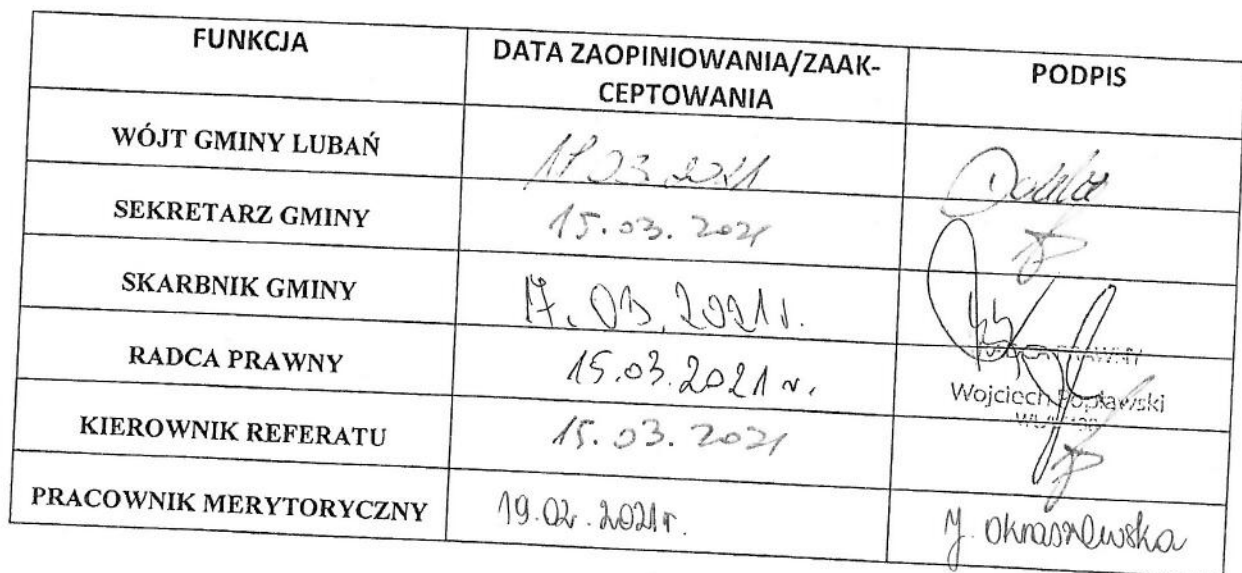 FUNKCJA
DATA ZAOPINIOWANIA/ZAAK-
CEPTOWANIA
PODPIS
WÓJT GMINY LUBAŃ
03.2021
SEKRETARZ GMINY
15.03.2021
SKARBNIK GMINY
17.03.2021r.
RADCA PRAWNY
15.03.2021 r.
RADCA PRAWNY
Wojciech Popławski
KIEROWNIK REFERATU
15.03.2021
PRACOWNIK MERYTORYCZNY
19.02.2021r.
J. Okraszewska